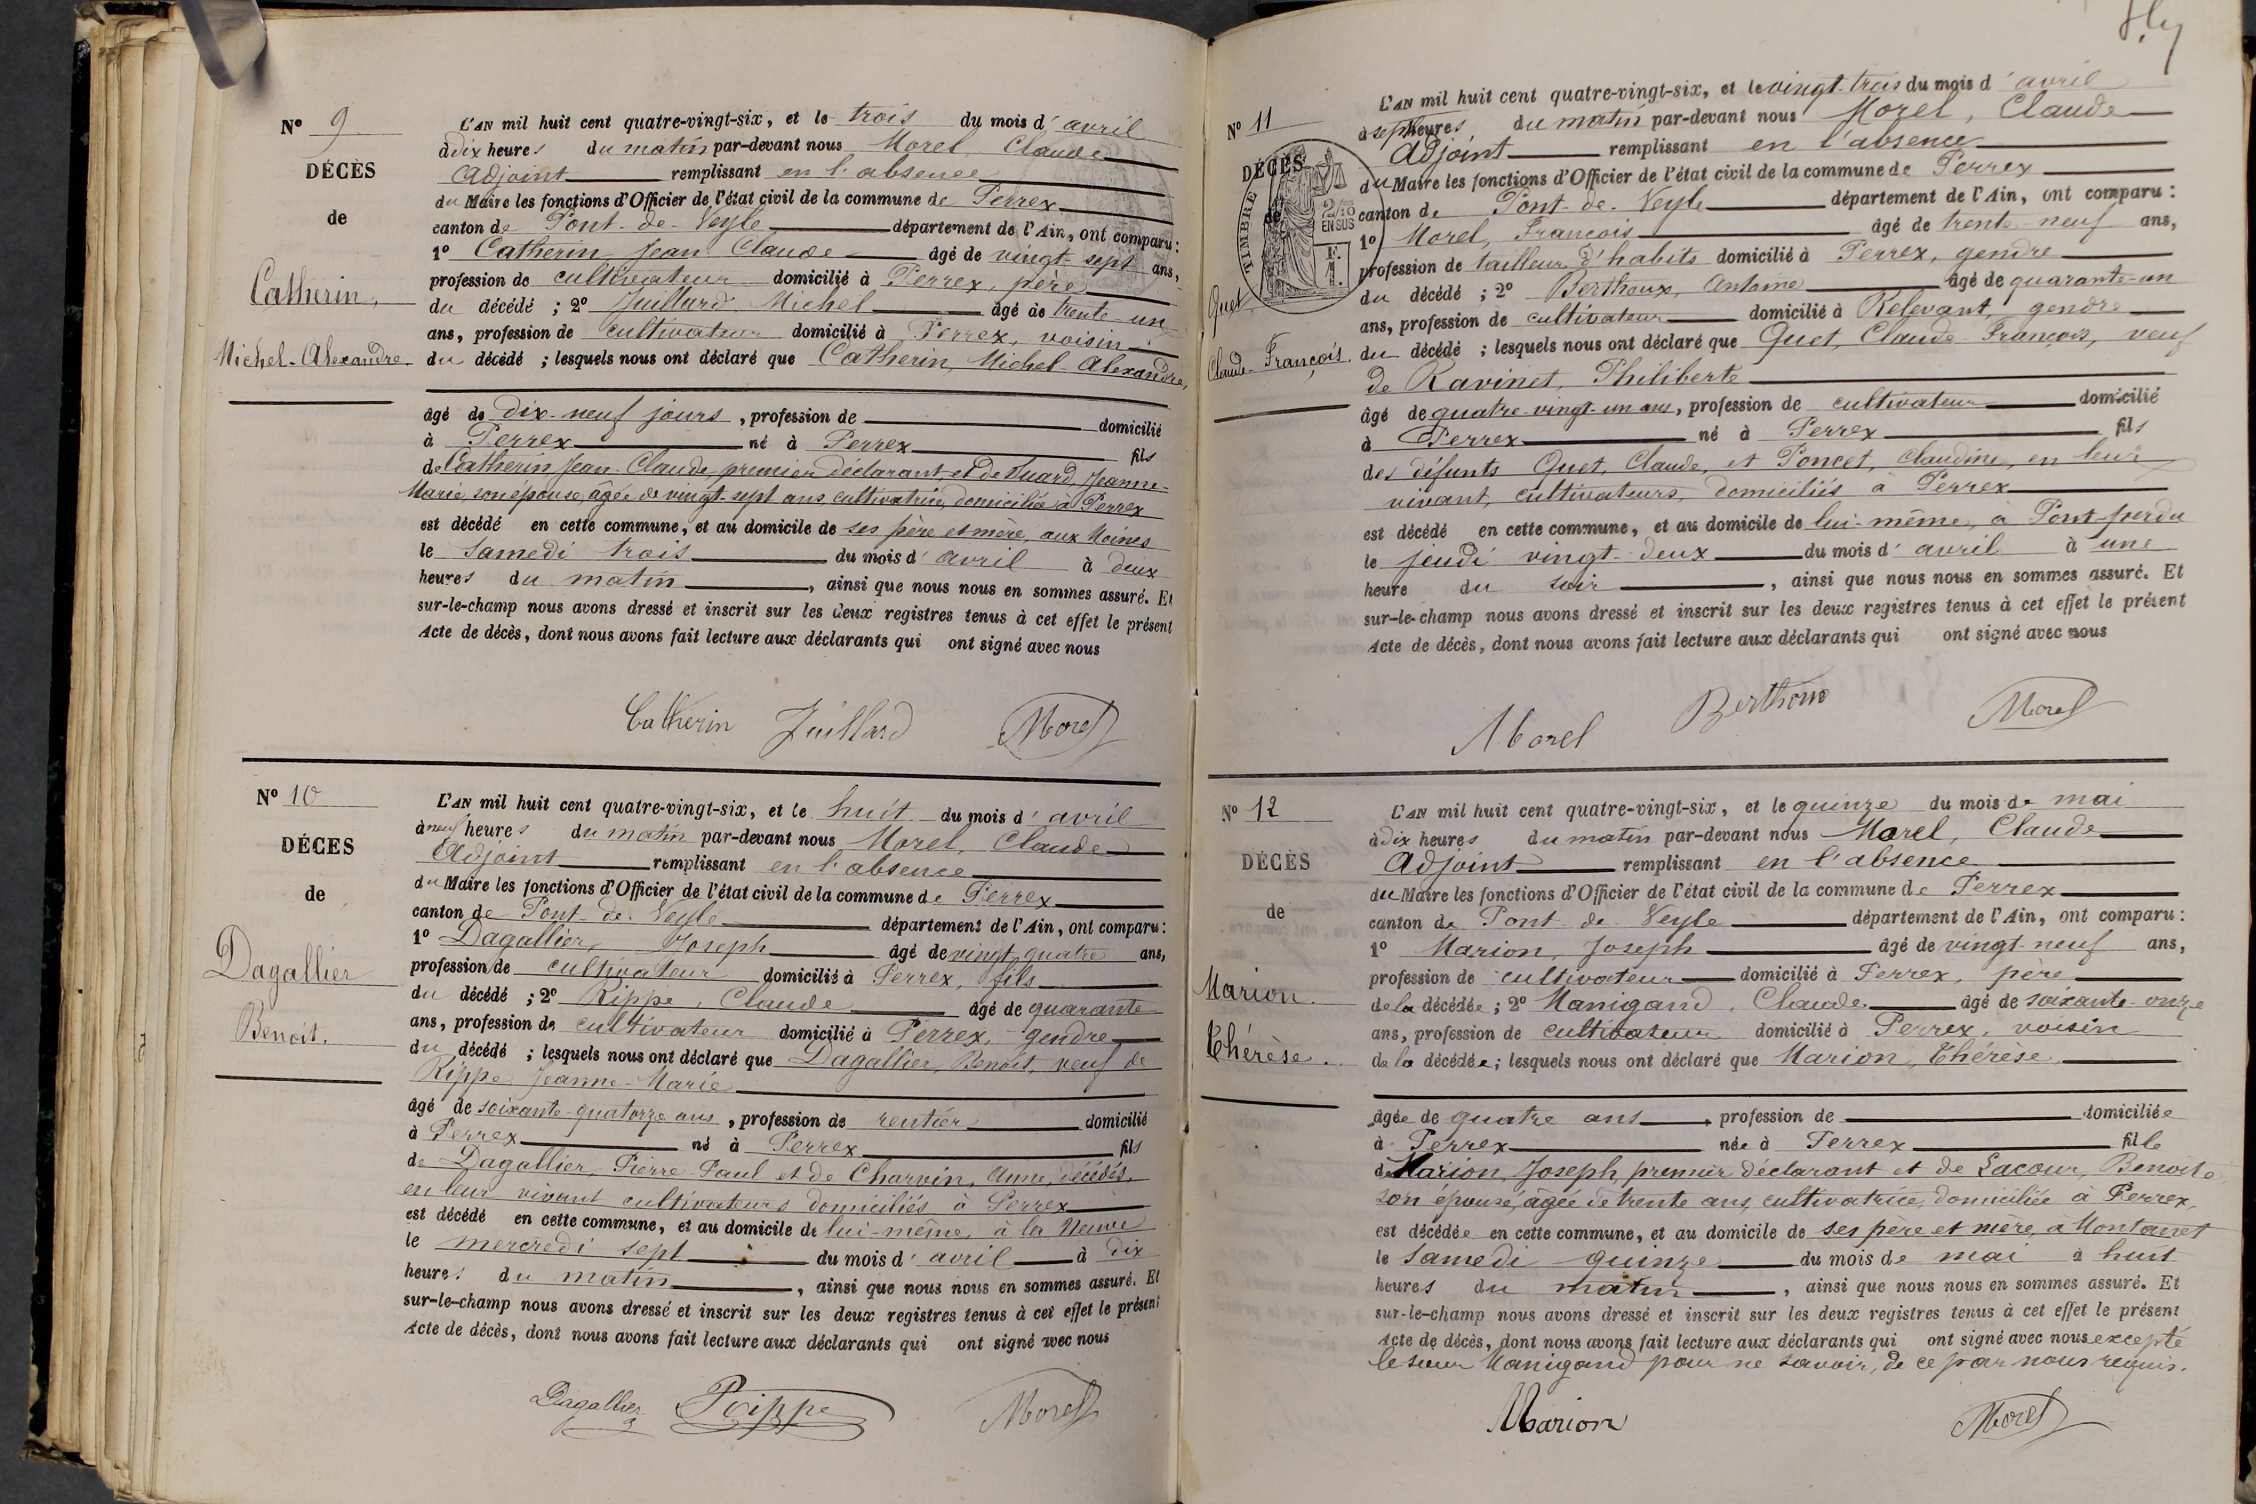 N° 9
DÉCÈS
de
Catherin,
Michel-Alexandre
L'AN mil huit cent quatre-vingt-six, et le trois du mois d'avril
à dix heures du matin par-devant nous Morel Claude
Adjoint remplissant en l'absence
du Maire les fonctions d'Officier de l'état civil de la commune de Perrex
canton de Pont-de-Veyle département de l'Ain, ont comparu :
1° Catherin Jean Claude âgé de vingt-sept ans,
profession de cultivateur domicilié à Perrex, père
du décédé ; 2° Juillard Michel âgé de trente-un
ans, profession de cultivateur domicilié à Perrex, voisin
du décédé ; lesquels nous ont déclaré que Catherin, Michel-Alexandre,
âgé de dix-neuf jours, profession de domicilié
à Perrex né à Perrex fils
de Catherin Jean-Claude premier déclarant, et de Huard, Jeanne-
Marie, son épouse, âgée de vingt-sept ans, cultivatrice, domiciliée à Perrex
est décédé en cette commune, et au domicile de ses père et mère, aux Moines
le samedi trois du mois d'avril à deux
heures du matin, ainsi que nous nous en sommes assuré. Et
sur-le-champ nous avons dressé et inscrit sur les deux registres tenus à cet effet le présent
Acte de décès, dont nous avons fait lecture aux déclarants qui ont signé avec nous
Catherin Juillard Morel
N° 10
DÉCÈS
de
Dagallier
Benoit.
L'AN mil huit cent quatre-vingt-six, et le huit du mois d'avril
à neuf heures du matin par-devant nous Morel, Claude
Adjoint remplissant en l'absence
du Maire les fonctions d'Officier de l'état civil de la commune de Perrex
canton de Pont-de-Veyle département de l'Ain, ont comparu :
1° Dagallier, Joseph âgé de vingt-quatre ans,
profession de cultivateur domicilié à Perrex, fils
du décédé ; 2° Rippe, Claude âgé de quarante
ans, profession de cultivateur domicilié à Perrex, gendre
du décédé ; lesquels nous ont déclaré que Dagallier, Benoit, veuf de
Rippe Jeanne-Marie
âgé de soixante-quatorze ans, profession de rentier domicilié
à Perrex né à Perrex fils
de Dagallier, Pierre-Paul et de Charvin, Anne, décédés,
en leur vivant cultivateurs domiciliés à Perrex
est décédé en cette commune, et au domicile de lui-même, à la Neuve
le mercredi sept du mois d'avril à dix
heures du matin, ainsi que nous nous en sommes assuré. Et
sur-le-champ nous avons dressé et inscrit sur les deux registres tenus à cet effet le présent
Acte de décès, dont nous avons fait lecture aux déclarants qui ont signé avec nous
Dagallier Rippe Morel
N° 11
DÉCÈS
de
TIMBRE
2/10
EN SUS
Quet
Claude-François.
L'AN mil huit cent quatre-vingt-six, et le vingt-trois du mois d'avril
à sept heures du matin par-devant nous Morel, Claude
Adjoint remplissant en l'absence
du Maire les fonctions d'Officier de l'état civil de la commune de Perrex
canton de Pont-de-Veyle département de l'Ain, ont comparu :
1° Morel, François âgé de trente-neuf ans,
profession de tailleur d'habits domicilié à Perrex, gendre
du décédé ; 2° Berthoux, Antoine âgé de quarante-un
ans, profession de cultivateur domicilié à Relevant, gendre
du décédé ; lesquels nous ont déclaré que Quet, Claude-François, veuf
de Ravinet, Philiberte
âgé de quatre-vingt-un ans, profession de cultivateur domicilié
à Perrex né à Perrex fils
des défunts Quet, Claude, et Poncet, Claudine, en leur
vivant, cultivateurs, domiciliés à Perrex
est décédé en cette commune, et au domicile de lui-même, à Pont-perdu
le jeudi vingt-deux du mois d'avril à une
heure du soir, ainsi que nous nous en sommes assuré. Et
sur-le-champ nous avons dressé et inscrit sur les deux registres tenus à cet effet le présent
Acte de décès, dont nous avons fait lecture aux déclarants qui ont signé avec nous
Morel Berthoux Morel
N° 12
DÉCÈS
de
Marion.
Thérèse.
L'AN mil huit cent quatre-vingt-six, et le quinze du mois de mai
à dix heures du matin par-devant nous Morel, Claude
Adjoint remplissant en l'absence
du Maire les fonctions d'Officier de l'état civil de la commune de Perrex
canton de Pont-de-Veyle département de l'Ain, ont comparu :
1° Marion, Joseph âgé de vingt-neuf ans,
profession de cultivateur domicilié à Perrex, père
de la décédée ; 2° Manigand, Claude âgé de soixante-onze
ans, profession de cultivateur domicilié à Perrex, voisin
de la décédée ; lesquels nous ont déclaré que Marion, Thérèse,
âgée de quatre ans, profession de domiciliée
à Perrex née à Perrex fille
de Marion, Joseph, premier déclarant et de Lacour, Benoite
son épouse, âgée de trente ans, cultivatrice, domiciliée à Perrex,
est décédée en cette commune, et au domicile de ses père et mère, à Montanet
le samedi quinze du mois de mai à huit
heures du matin, ainsi que nous nous en sommes assuré. Et
sur-le-champ nous avons dressé et inscrit sur les deux registres tenus à cet effet le présent
Acte de décès, dont nous avons fait lecture aux déclarants qui ont signé avec nous excepté
le sieur Manigand pour ne savoir, de ce par nous requis.
Marion Morel